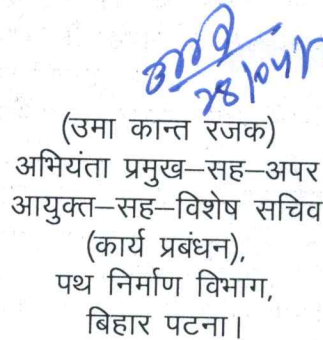 (उमा कान्त रजक)
अभियंता प्रमुख–सह–अपर
आयुक्त–सह–विशेष सचिव
(कार्य प्रबंधन),
पथ निर्माण विभाग,
बिहार पटना।